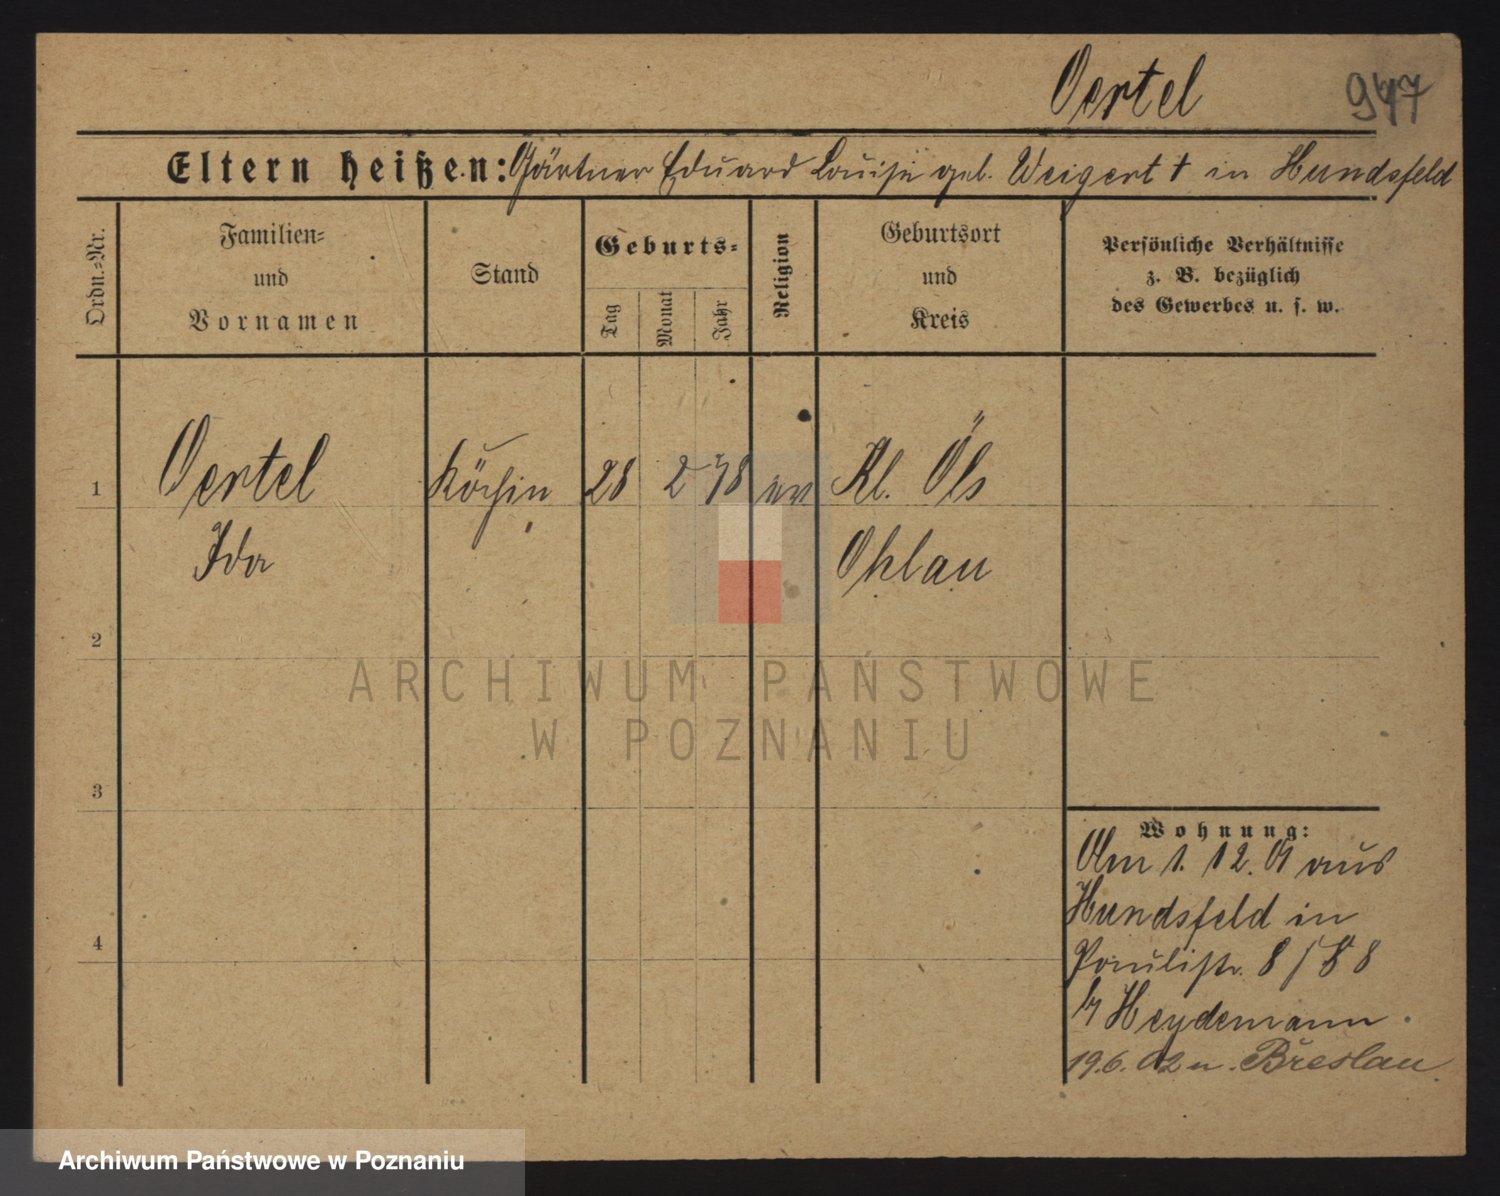 Oertel
947
Eltern heißen: Gärtner Eduard Louise geb. Weigert † in Hundsfeld
Ordn.=Nr.
Familien=
und
Vornamen
Stand
Geburts=
Tag
Monat
Jahr
Religion
Geburtsort
und
Kreis
Persönliche Verhältnisse
z. B. bezüglich
des Gewerbes u. s. w.
1
Oertel
Köchin
28
2
78
ev
Kl. Öls
Ida
Ohlau
2
ARCHIWUM PAŃSTWOWE
W POZNANIU
3
Wohnung:
Am 1. 12. 01 aus
Hundsfeld in
Paulistr. 8
b/ Heydemann.
4
19.6.02 n. Breslau.
Archiwum Państwowe w Poznaniu